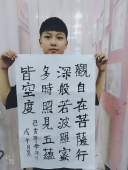 觀自在菩薩行
深般若波羅蜜
多時照見五蘊
皆空度
己亥年